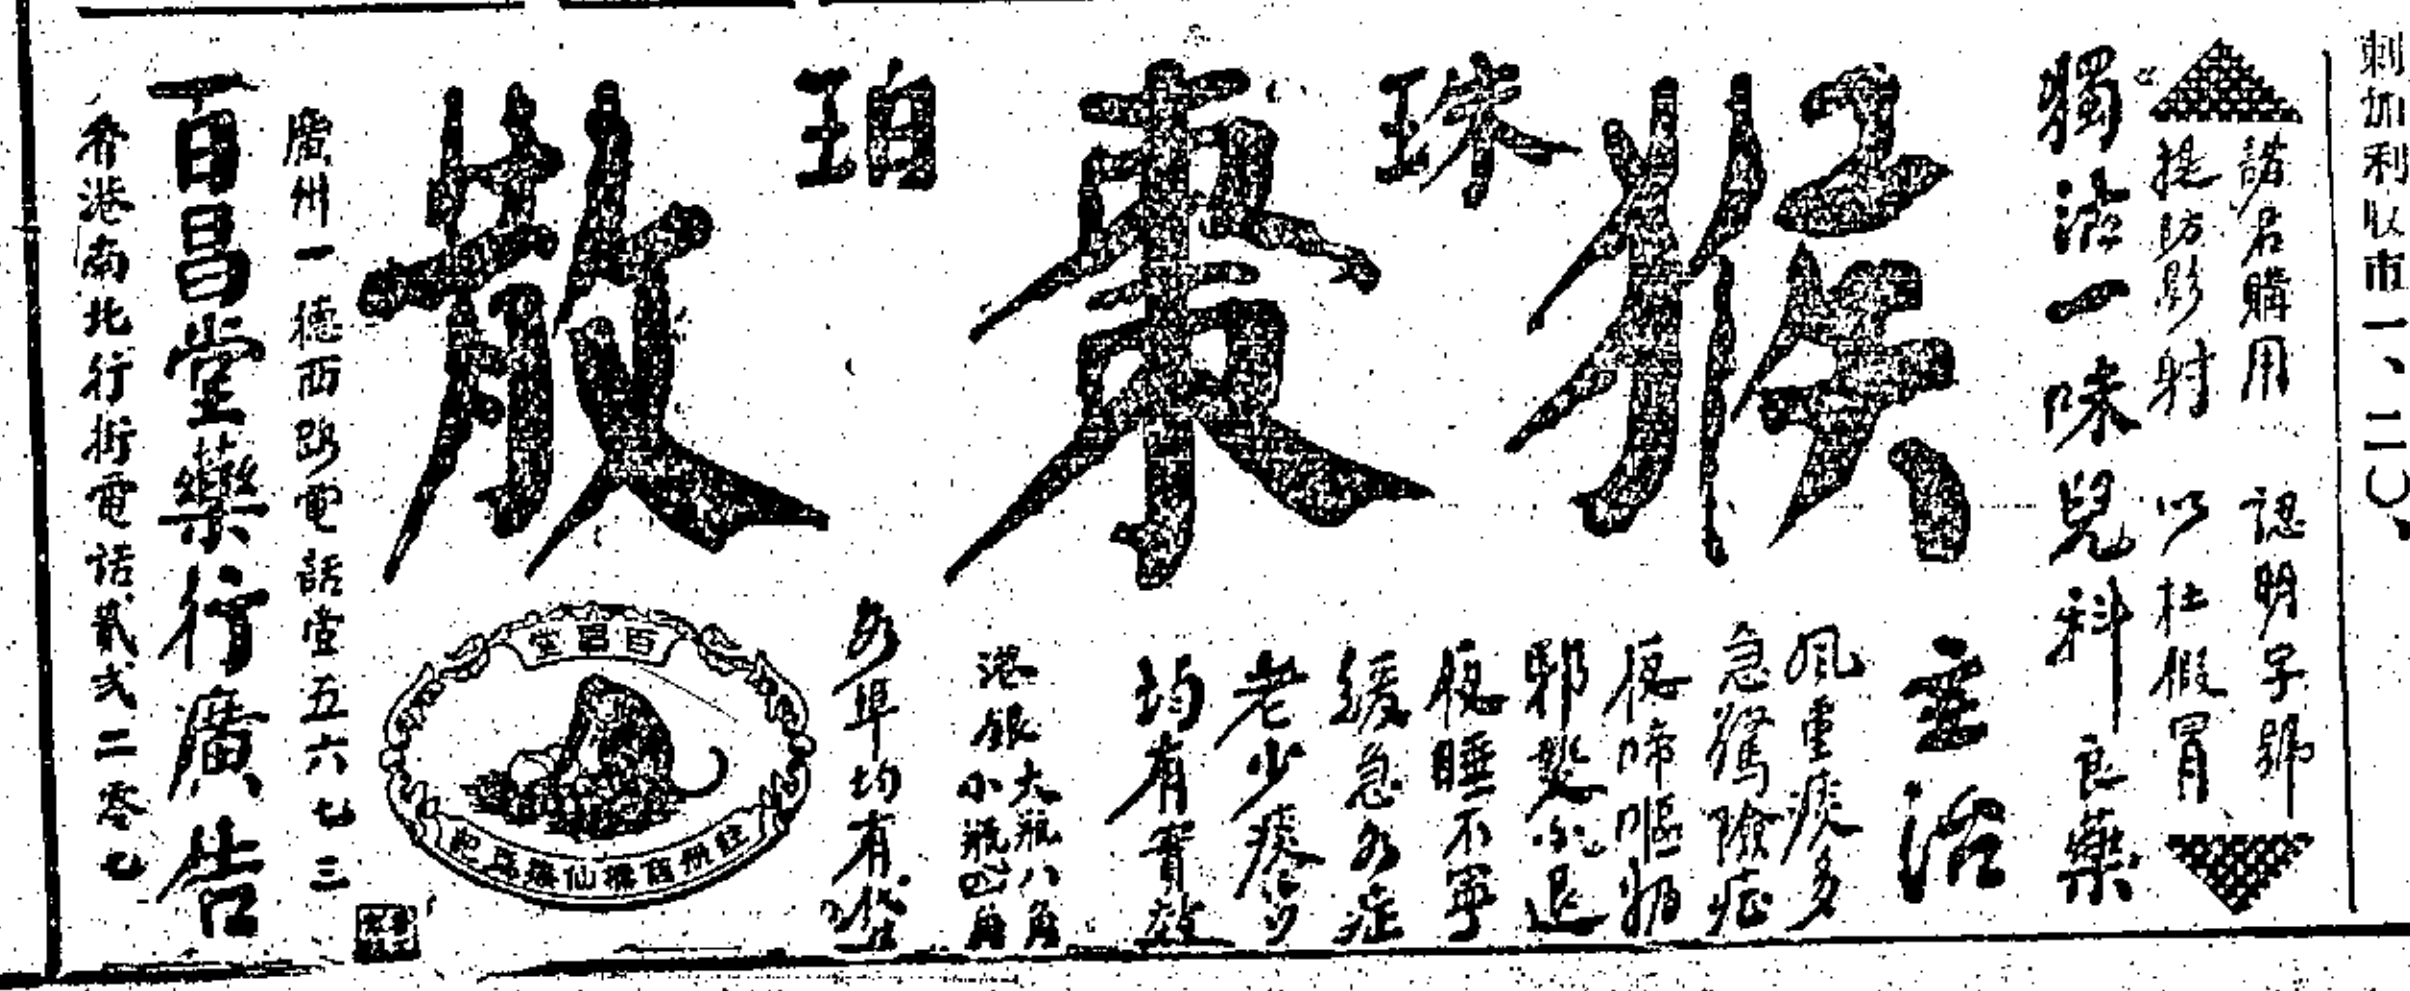 剌加利收市一、二〇、
諸君購用 認明字號
提防影射 以杜假冒
獨沽一味兒科良藥
猴棗散
珠珀
主治
風重痰多
急驚險症
夜啼嘔瀉
邪熱不退
夜睡不寧
緩急各症
老少痰
均有實效
港銀
大瓶八角
小瓶四角
各埠均有
百昌堂
廣州一德西路電話壹五六七三
百昌堂藥行廣告
香港南北行街電話貳弍二零七